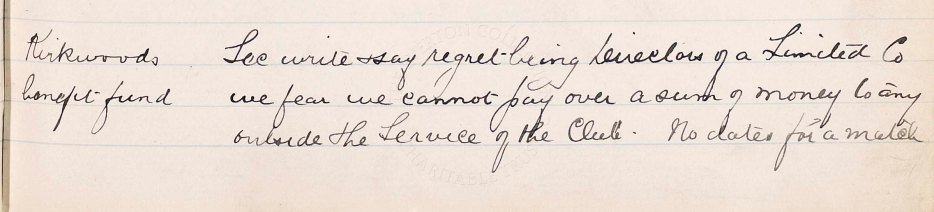 Kirkwoods Sec write & say regret being Directors of a Limited Co
benefit fund we fear we cannot pay over a sum of money to any
outside the Service of the Club. No dates for a match